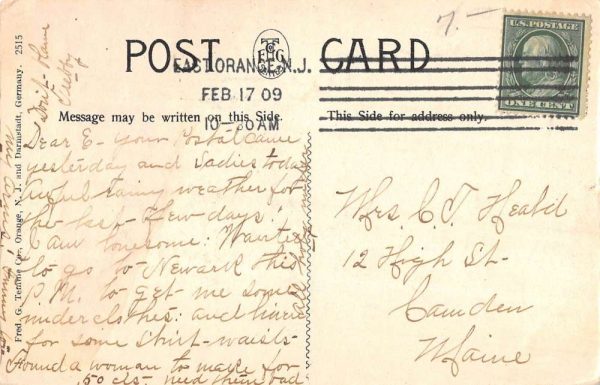 POST CARD
EAST ORANGE, N.J.
FEB 17 09
10-30 AM
7.-
U.S. POSTAGE
ONE CENT
Message may be written on this Side.
This Side for address only.
Fred. G. Temme Co., Orange, N. J. and Darmstadt, Germany. 2515
Dear E- your Postal came
yesterday and Sadies today
Awful rainy weather for
the last few days!
I am lonesome: Wanted
to go to Newark this
P.M. to get me some
underclothes: and linen
for some shirt-waists
Found a woman to make for
50 cts. need them bad
Mrs. C. T. Heald
12 High St-
Camden
Maine